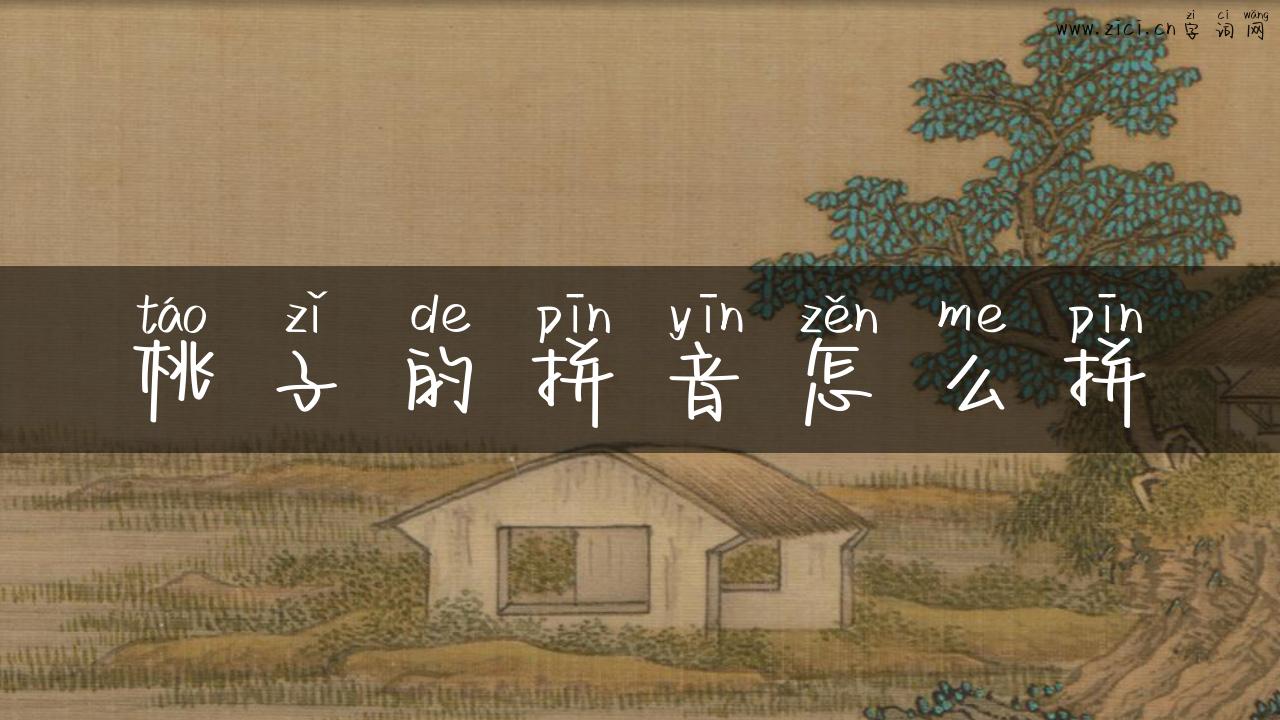 zì cí wǎng
www.zici.cn 字 词 网
táo zǐ de pīn yīn zěn me pīn
桃 子 的 拼 音 怎 么 拼